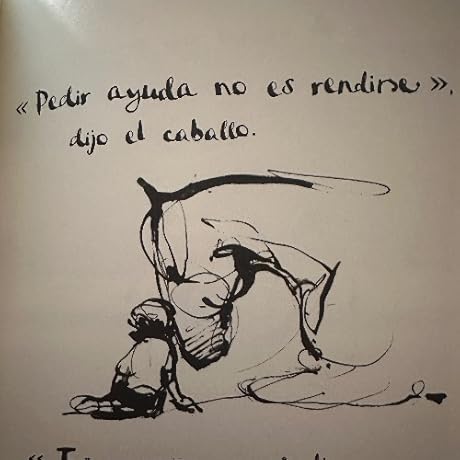 «Pedir ayuda no es rendirse»,
dijo el caballo.